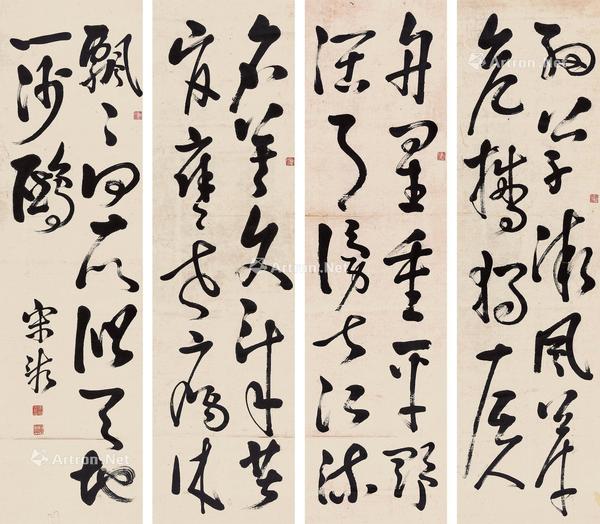 細草微風岸
危檣獨夜
舟星垂平野
闊月湧大江流
名豈文章著
官應老病休
飄〻何所似天地
一沙鷗
宋湘
Artron.Net
Artron.Net
Artron.Net
Artron.Net